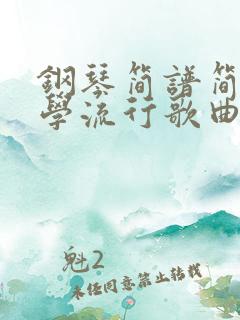 鋼琴简譜简
學流行歌曲
魁2
未经同意禁止转载